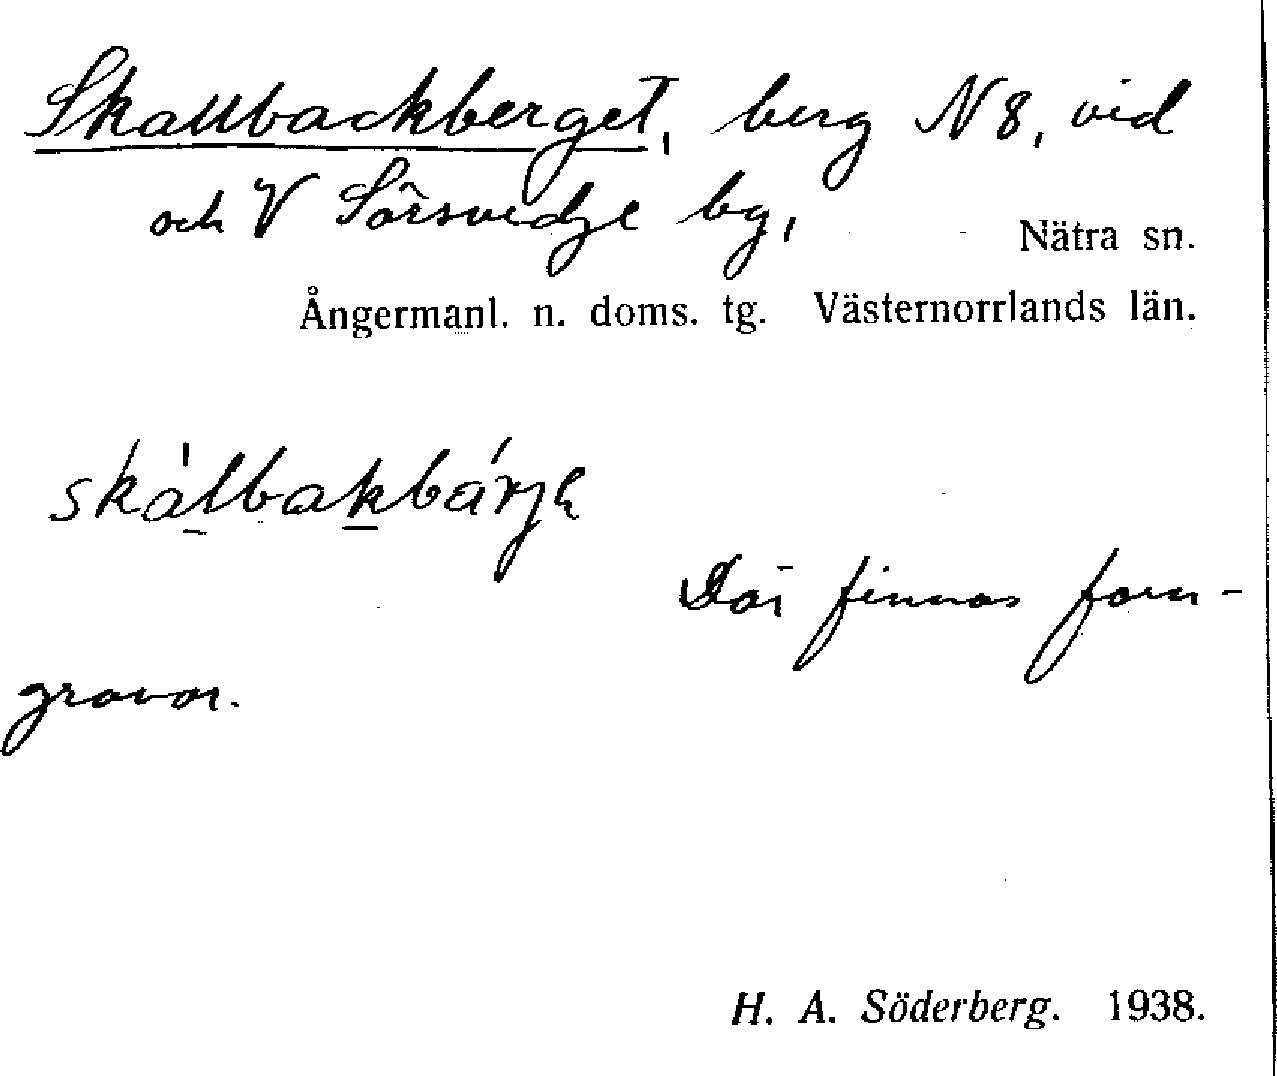 Skallbackberget, berg N 8, vid
och V Sörsvedje bg,
Nätra sn.
Ångermanl. n. doms. tg. Västernorrlands län.
skálbakbárjɛ
Där finnas forn-
gravar.
H. A. Söderberg. 1938.